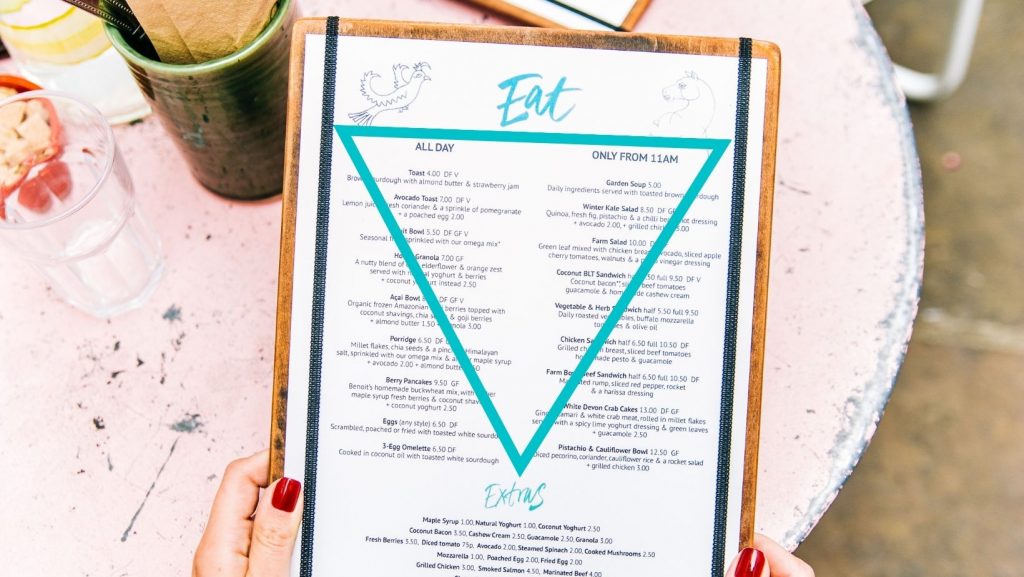 Eat
ALL DAY
Toast 4.00 DF V
sourdough with almond butter & strawberry jam
Avocado Toast 7.00 DF V
Lemon coriander & a sprinkle of pomegranate
+ a poached egg 2.00
Bowl 5.50 DF GF V
Seasonal sprinkled with our omega mix*
Granola 7.00 GF
A nutty blend of elderflower & orange zest
served with yoghurt & berries
+ coconut yoghurt instead 2.50
Açai Bowl GF V
Organic frozen Amazonian topped with
coconut shavings, chia & goji berries
+ almond butter 1.50 3.00
Porridge 6.50 DF GF V
Millet flakes, chia seeds & a Himalayan
salt, sprinkled with our omega mix & maple syrup
+ avocado 2.00 + almond butter
Berry Pancakes 9.50 GF
Benoit's homemade buckwheat mix, with
maple syrup fresh berries & coconut
+ coconut yoghurt 2.50
Eggs (any style) 6.50 DF
Scrambled, poached or fried with toasted white
3-Egg Omelette 6.50 DF
Cooked in coconut oil with toasted white sourdough
ONLY FROM 11AM
Garden Soup 5.00
Daily ingredients served with toasted brown
Winter Kale Salad 8.50 DF GF
Quinoa, fresh fig, pistachio & a chilli dressing
+ avocado 2.00, + grilled chicken 3.00
Farm Salad 10.00 DF
Green leaf mixed with chicken avocado, sliced apple
cherry tomatoes, walnuts & a vinegar dressing
Coconut BLT Sandwich half 5.50 full 9.50 DF V
Coconut bacon**, beef tomatoes
guacamole & cashew cream
Vegetable & Herb Sandwich half 5.50 full 9.50
Daily roasted buffalo mozzarella
& olive oil
Chicken Sandwich half 6.50 full 10.50 DF
Grilled breast, sliced beef tomatoes
pesto & guacamole
Farm Beef Sandwich half 6.50 full 10.50 DF
rump, sliced red pepper, rocket
& a harissa dressing
White Devon Crab Cakes 13.00 DF GF
& white crab meat, rolled in millet flakes
with a spicy lime yoghurt dressing & green leaves
+ guacamole 2.50
Pistachio & Cauliflower Bowl 12.50 GF
Diced pecorino, coriander, cauliflower rice & a rocket salad
+ grilled chicken 3.00
Extras
Maple Syrup 1.00, Natural Yoghurt 1.00, Coconut Yoghurt 2.50
Coconut Bacon 3.50, Cashew Cream 2.50, Guacamole 2.50, Granola 3.00
Fresh Berries 3.50, Diced tomato 75p, Avocado 2.00, Steamed Spinach 2.00, Cooked Mushrooms 2.50
Mozzarella 1.00, Poached Egg 2.00, Fried Egg 2.00
Grilled Chicken 3.00, Smoked Salmon 4.50, Marinated Beef 4.00